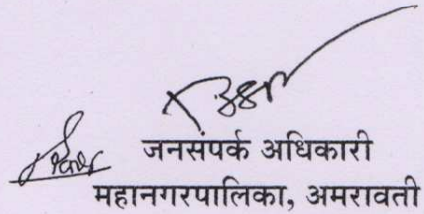 जनसंपर्क अधिकारी
महानगरपालिका, अमरावती